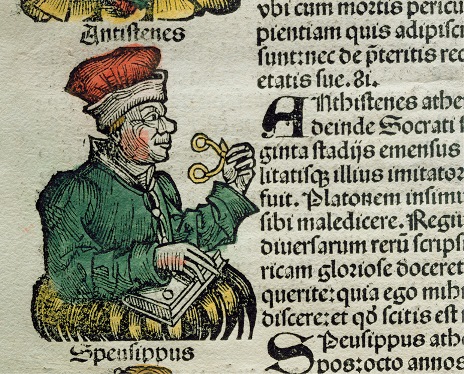 Antistenes
vbi cum mortis pericu
pientiam quis adipisci
sunt:nec de p̃teritis rec
etatis sue.81.
ANthistenes athe
deinde Socrati
ginta stadijs emensus
litatisqꝫ illius imitator
fuit. Platonem insimu
sibi maledicere. Regu
diuersarum rerũ scrips
ricam gloriose doceret
querite:quia ego mihi
discere:et qđ scitis est
Speusippus
SPeusippus athe
pos:octo annos